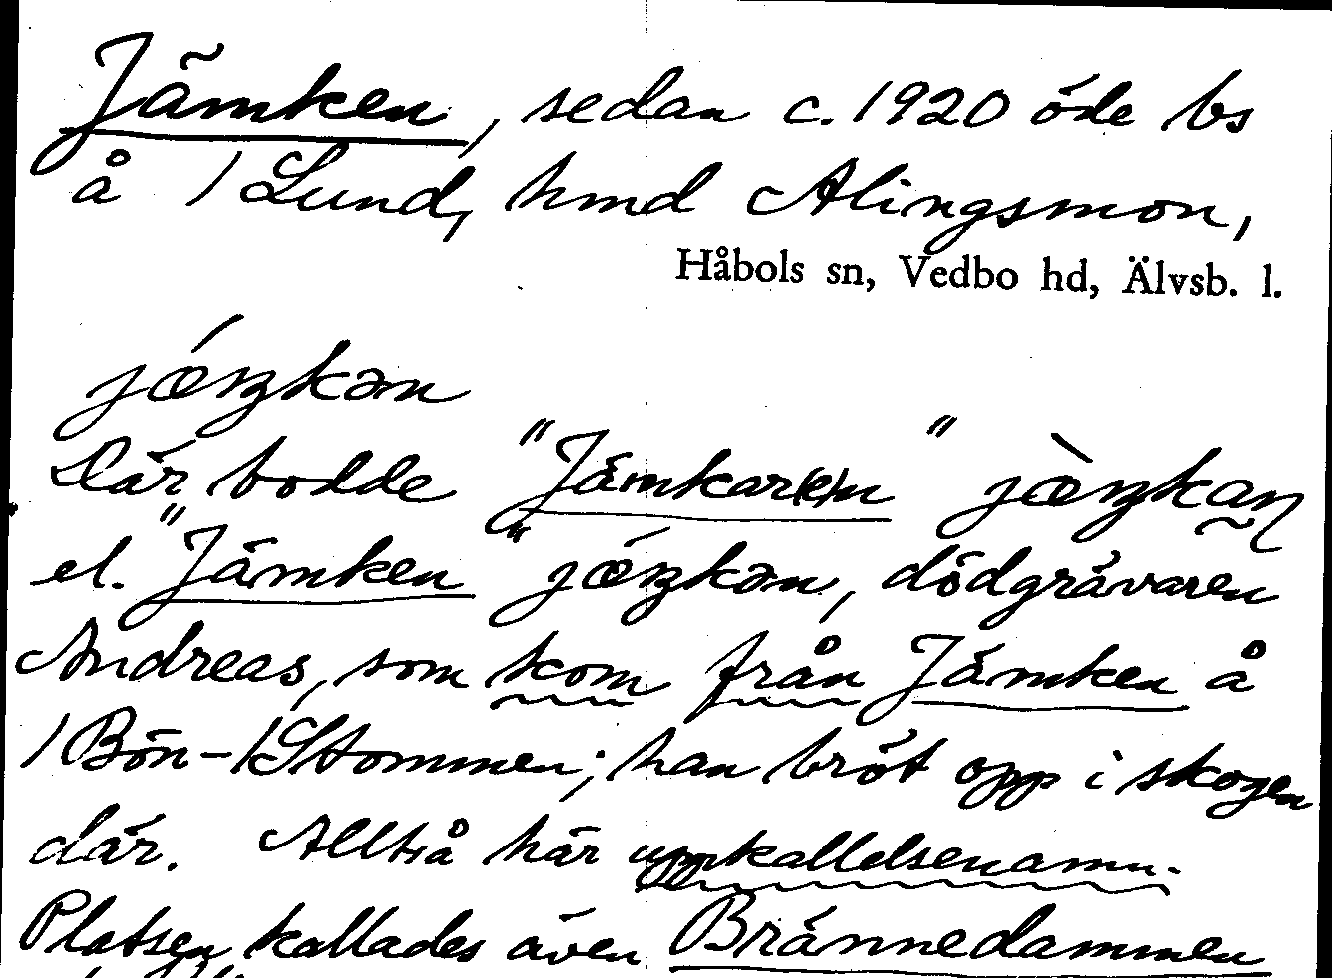 Jämken, sedan c. 1920 öde bs
å /Lund, hmd Alingsmon,
Håbols sn, Vedbo hd, Älvsb. l.
Där bodde "Jämkar(e)n"
el. "Jämken", dödgrävaren
Andreas, som kom från Jämken å
/Bön-/Stommen; han bröt opp i skogen
där. Alltså här uppkallelsenamn.
Platsen kallades även Brännedammen